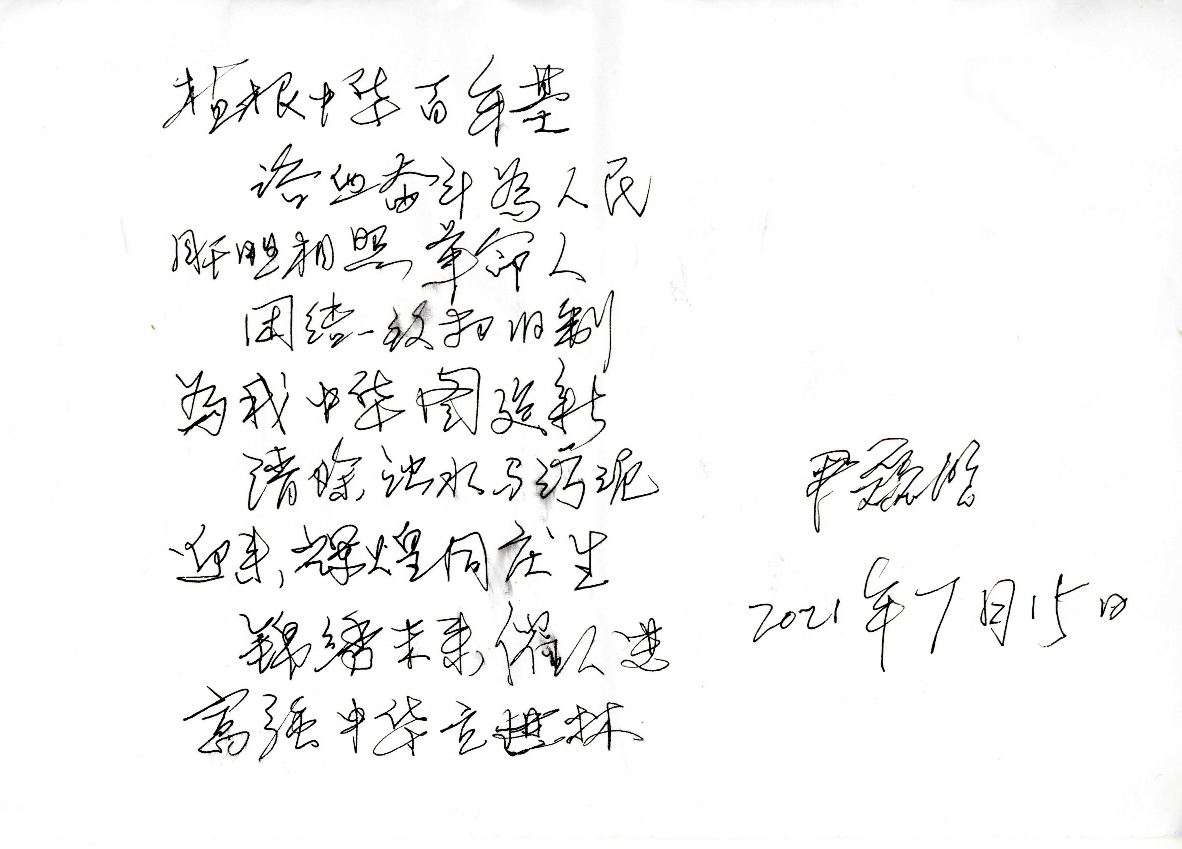 植根中华百年基
浴血奋斗为人民
肝胆相照革命人
团结一致扫旧制
为我中华图建新
清除浊水与污泥
迎来辉煌同庆生
锦绣未来催人进
富强中华立世林
尹
2021年7月15日